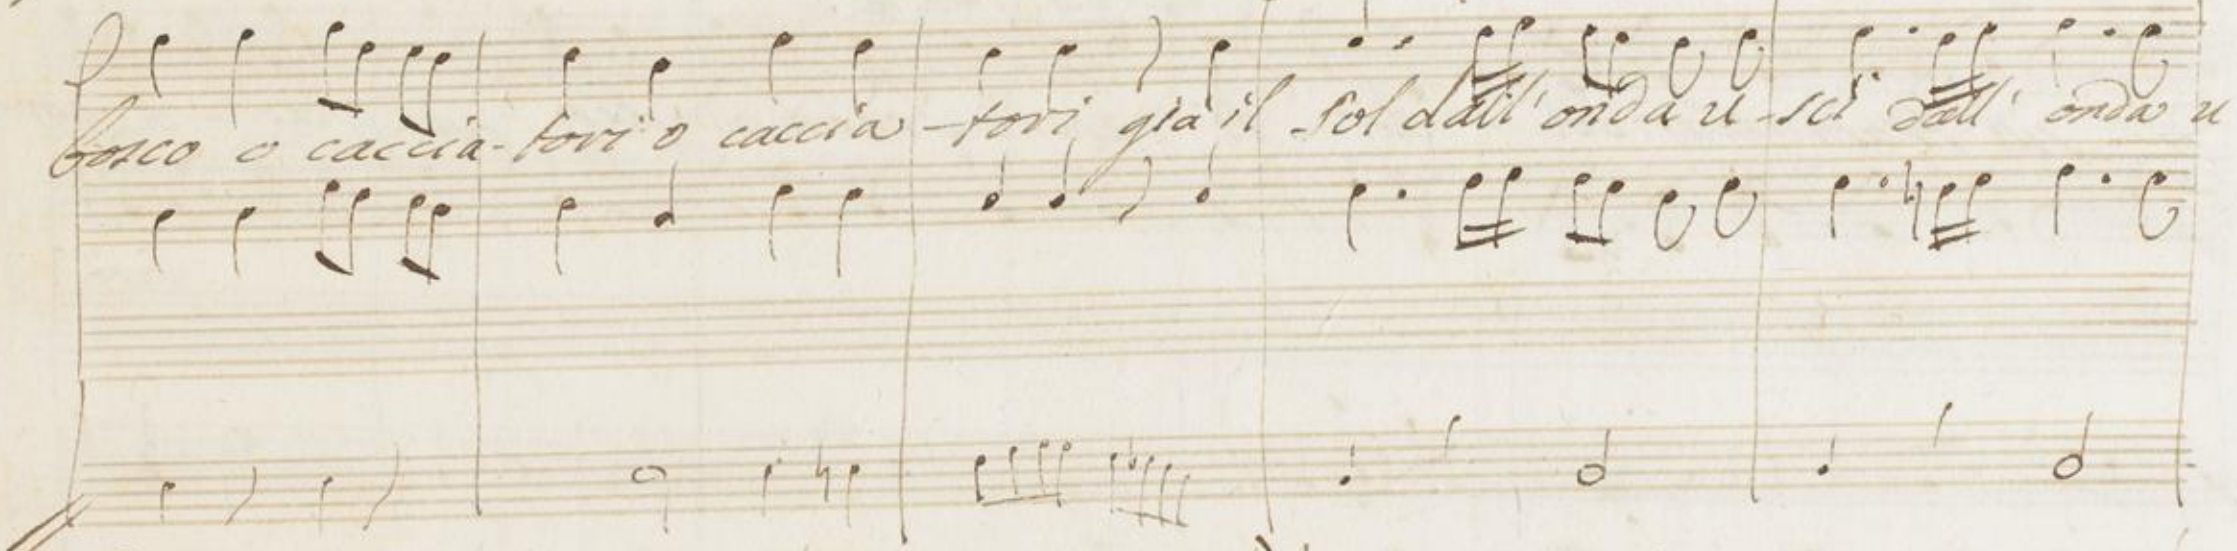 bosco o caccia-tori o caccia-tori già il Sol dall' onda u-scì dall' onda u